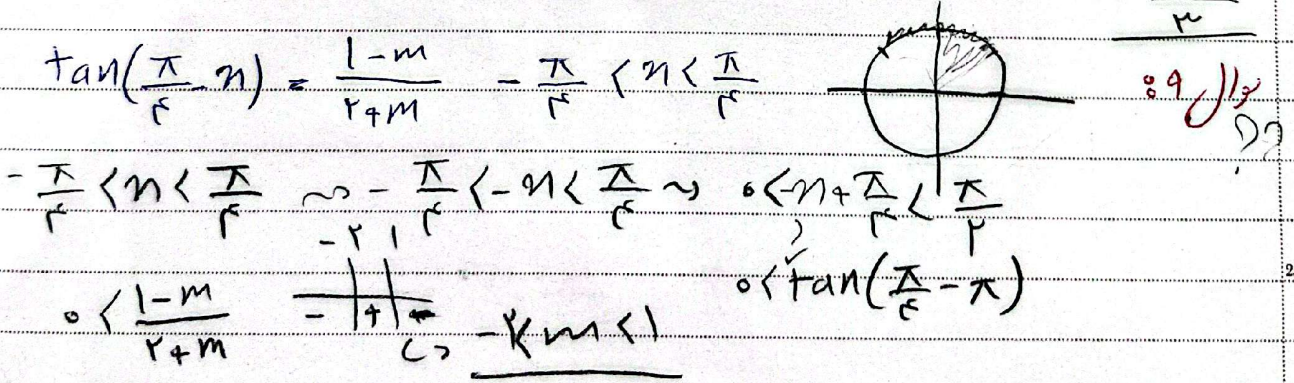 ۳
سوال ۹:
??
tan(π/۴ - x) = (1-m)/(۲+m)   -π/۴ < x < π/۴
-π/۴ < x < π/۴ ⇝ -π/۴ < -x < π/۴ ⇝ ۰ < -x + π/۴ < π/۲
۰ < tan(π/۴ - π)
-۲ ۱
- + -
۰ < (1-m)/(۲+m)   -۲ < m < 1
2